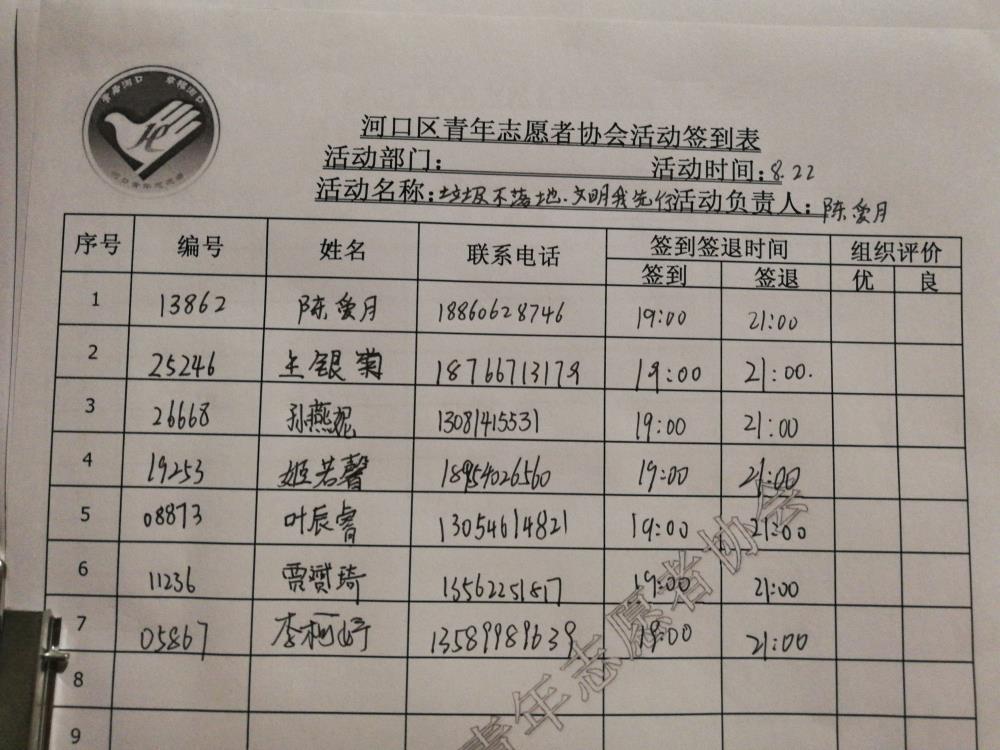 河口区青年志愿者协会活动签到表
活动部门： 活动时间：8.22
活动名称：垃圾不落地.文明我先行 活动负责人：陈爱月
序号 编号 姓名 联系电话 签到签退时间 组织评价
签到 签退 优 良
1 13862 陈爱月 18860628746 19:00 21:00
2 25246 王银菊 18766713179 19:00 21:00.
3 26668 孙燕妮 13081415531 19:00 21:00
4 19253 姬若馨 18954026560 19:00 21:00
5 08873 叶辰睿 13054614821 19:00 21:00
6 11236 贾赟琦 13562251817 19:00 21:00
7 05867 李柯婷 13589989639 19:00 21:00
8
9
青年志愿者协会